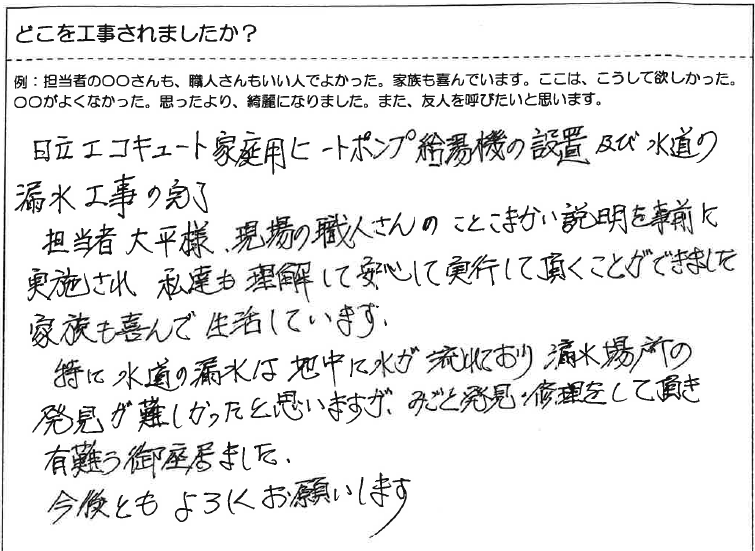 どこを工事されましたか?
例：担当者の〇〇さんも、職人さんもいい人でよかった。家族も喜んでいます。ここは、こうして欲しかった。
〇〇がよくなかった。思ったより、綺麗になりました。また、友人を呼びたいと思います。
日立エコキュート家庭用ヒートポンプ給湯機の設置及び水道の
漏水工事の完了
担当者大平様、現場の職人さんのことこまかい説明を事前に
実施され、私達も理解して安心して実行して頂くことができました
家族も喜んで生活しています。
特に水道の漏水は地中に水が流れており漏水場所の
発見が難しかったと思いますが、みごと発見・修理をして頂き
有難う御座居ました。
今後ともよろしくお願いします